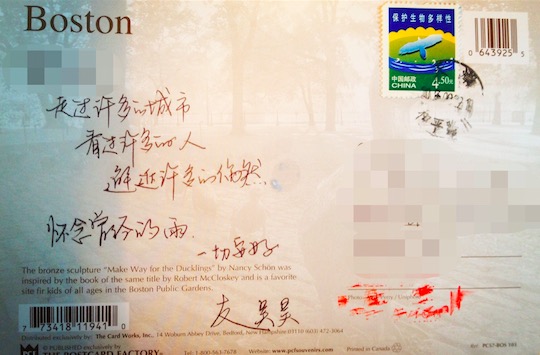 Boston
保护生物多样性
中国邮政
CHINA
4.50元
0 643925 5
走过许多的城市
看过许多的人
邂逅许多的偶然
怀念常
的雨.
一切要好
The bronze sculpture "Make Way for the Ducklings" by Nancy Schön was
inspired by the book of the same title by Robert McCloskey and is a favorite
site fir kids of all ages in the Boston Public Gardens.
友 昊昊
7 73418 11941 0
Distributed exclusively by: The Card Works, Inc., 14 Woburn Abbey Drive, Bedford, New Hampshire 03110 (603) 472-3064
PUBLISHED exclusively by
THE POSTCARD FACTORY
Tel: 1-800-563-7678
Website: www.pcfsouvenirs.com
Printed in Canada
Ref: PC57-BOS 595